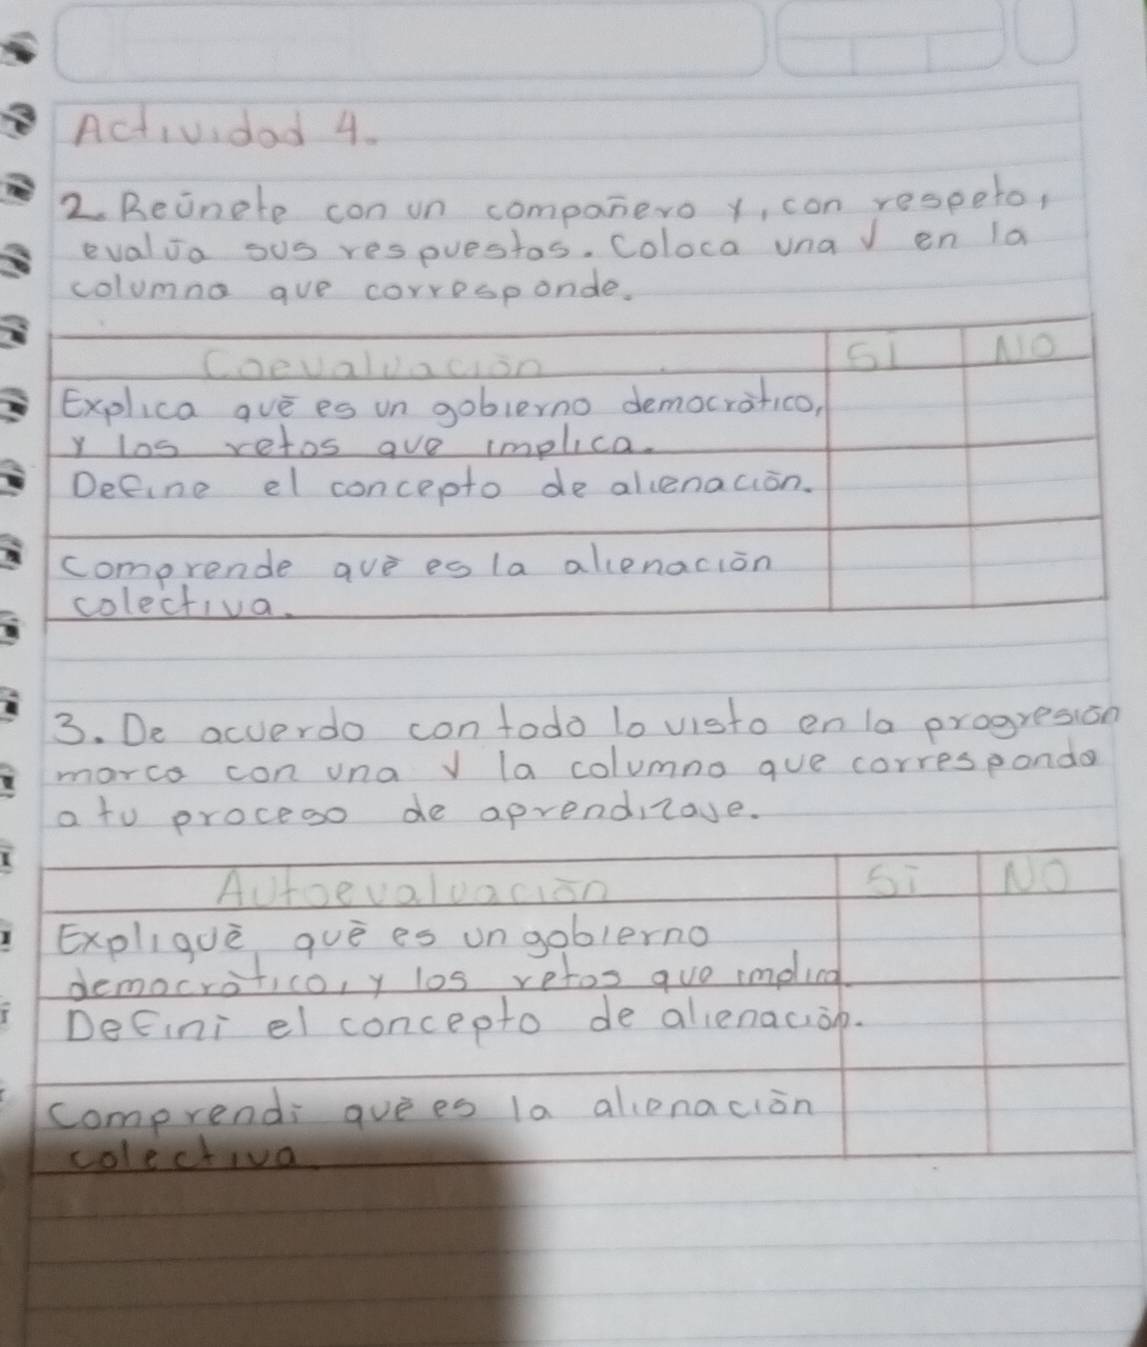 Actividad 4.
2. Reúnete con un compañero y, con respeto,
evalúa sus respuestas. Coloca una √ en la
columna que corresponde.
Coevaluación Sí NO
Explica qué es un gobierno democrático,
y los retos que implica.
Define el concepto de alienación.
comprende qué es la alienación
colectiva.
3. De acuerdo con todo lo visto en la progresión
marca con una √ la columna que corresponda
a tu proceso de aprendizaje.
Autoevaluación Sí NO
Expliqué, qué es un gobierno
democrático, y los retos que implica.
Definí el concepto de alienación.
comprendí qué es la alienación
colectiva.